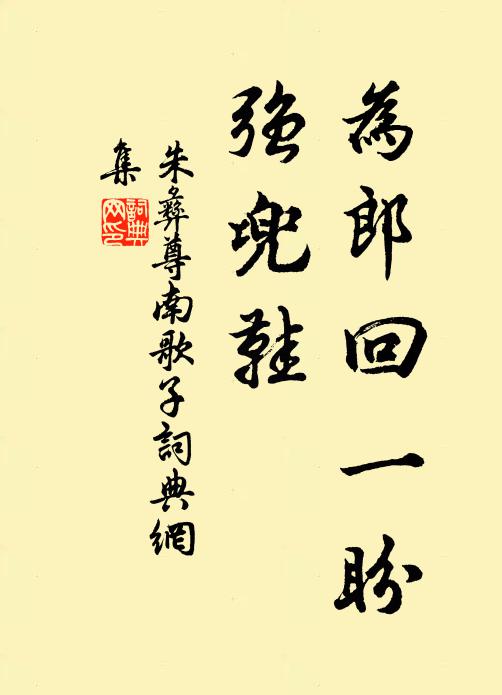 為郎回一盼
強兜鞋
朱彝尊南歌子詞典網
集
詞典
网印